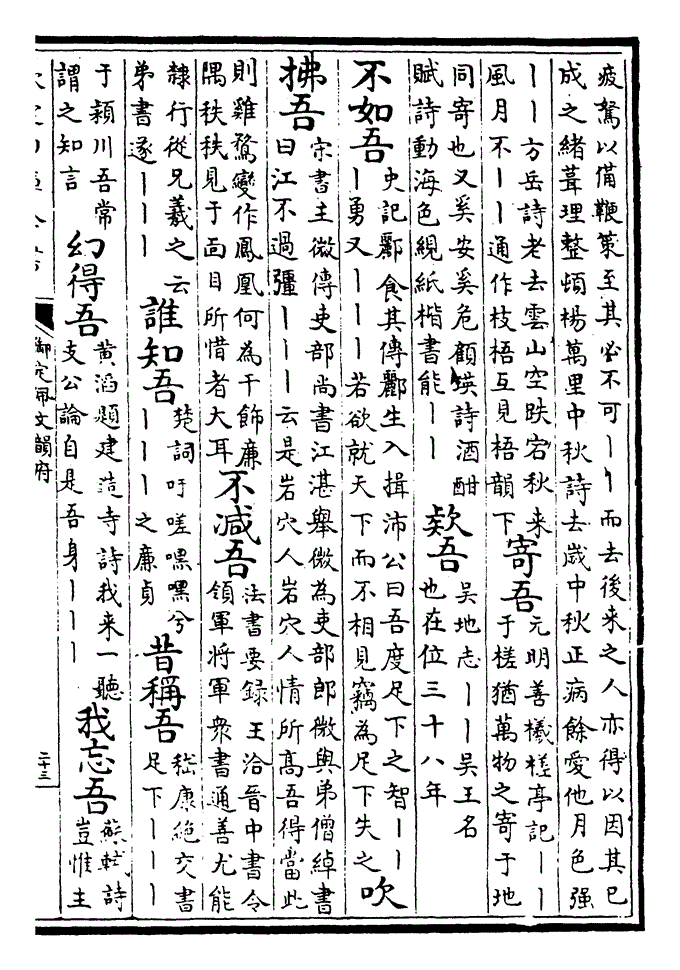 疲駑以備鞭策至其必不可丨丨而去後来之人亦得以因其已
成之緒葺理整頓楊萬里中秋詩去歳中秋正病餘愛他月色强
丨丨方岳詩老去雲山空跌宕秋来
風月不丨丨通作枝梧互見梧韻下
寄吾
元明善㰕槎亭記丨丨
于槎猶萬物之寄于地
同寄也又奚安奚危顧瑛詩酒酣
賦詩動海色紙楷書能丨丨
欵吾
吴地志丨丨吴王名
也在位三十八年
不如吾
史記酈食其傳酈生入揖沛公曰吾度足下之智丨丨
丨勇又丨丨丨若欲就天下而不相見竊為足下失之
吹
拂吾
宋書王微傳吏部尚書江湛舉微為吏部郎微與弟僧綽書
曰江不過彊丨丨丨云是岩穴人岩穴人情所高吾得當此
則雞鶩變作鳳凰何為干飾廉
隅秩秩見于面目所惜者大耳
不減吾
法書要録王洽晉中書令
領軍將軍衆書通善尤能
隸行從兄羲之云
弟書遂丨丨丨
誰知吾
楚詞吁嗟嘿嘿兮
丨丨丨之廉貞
昔稱吾
嵇康絶交書
足下丨丨丨
于潁川吾常
謂之知言
幻得吾
黄滔題建造寺詩我来一聽
支公論自是吾身丨丨丨
我忘吾
蘇軾詩
豈惟主
御定佩文韻府
二十三